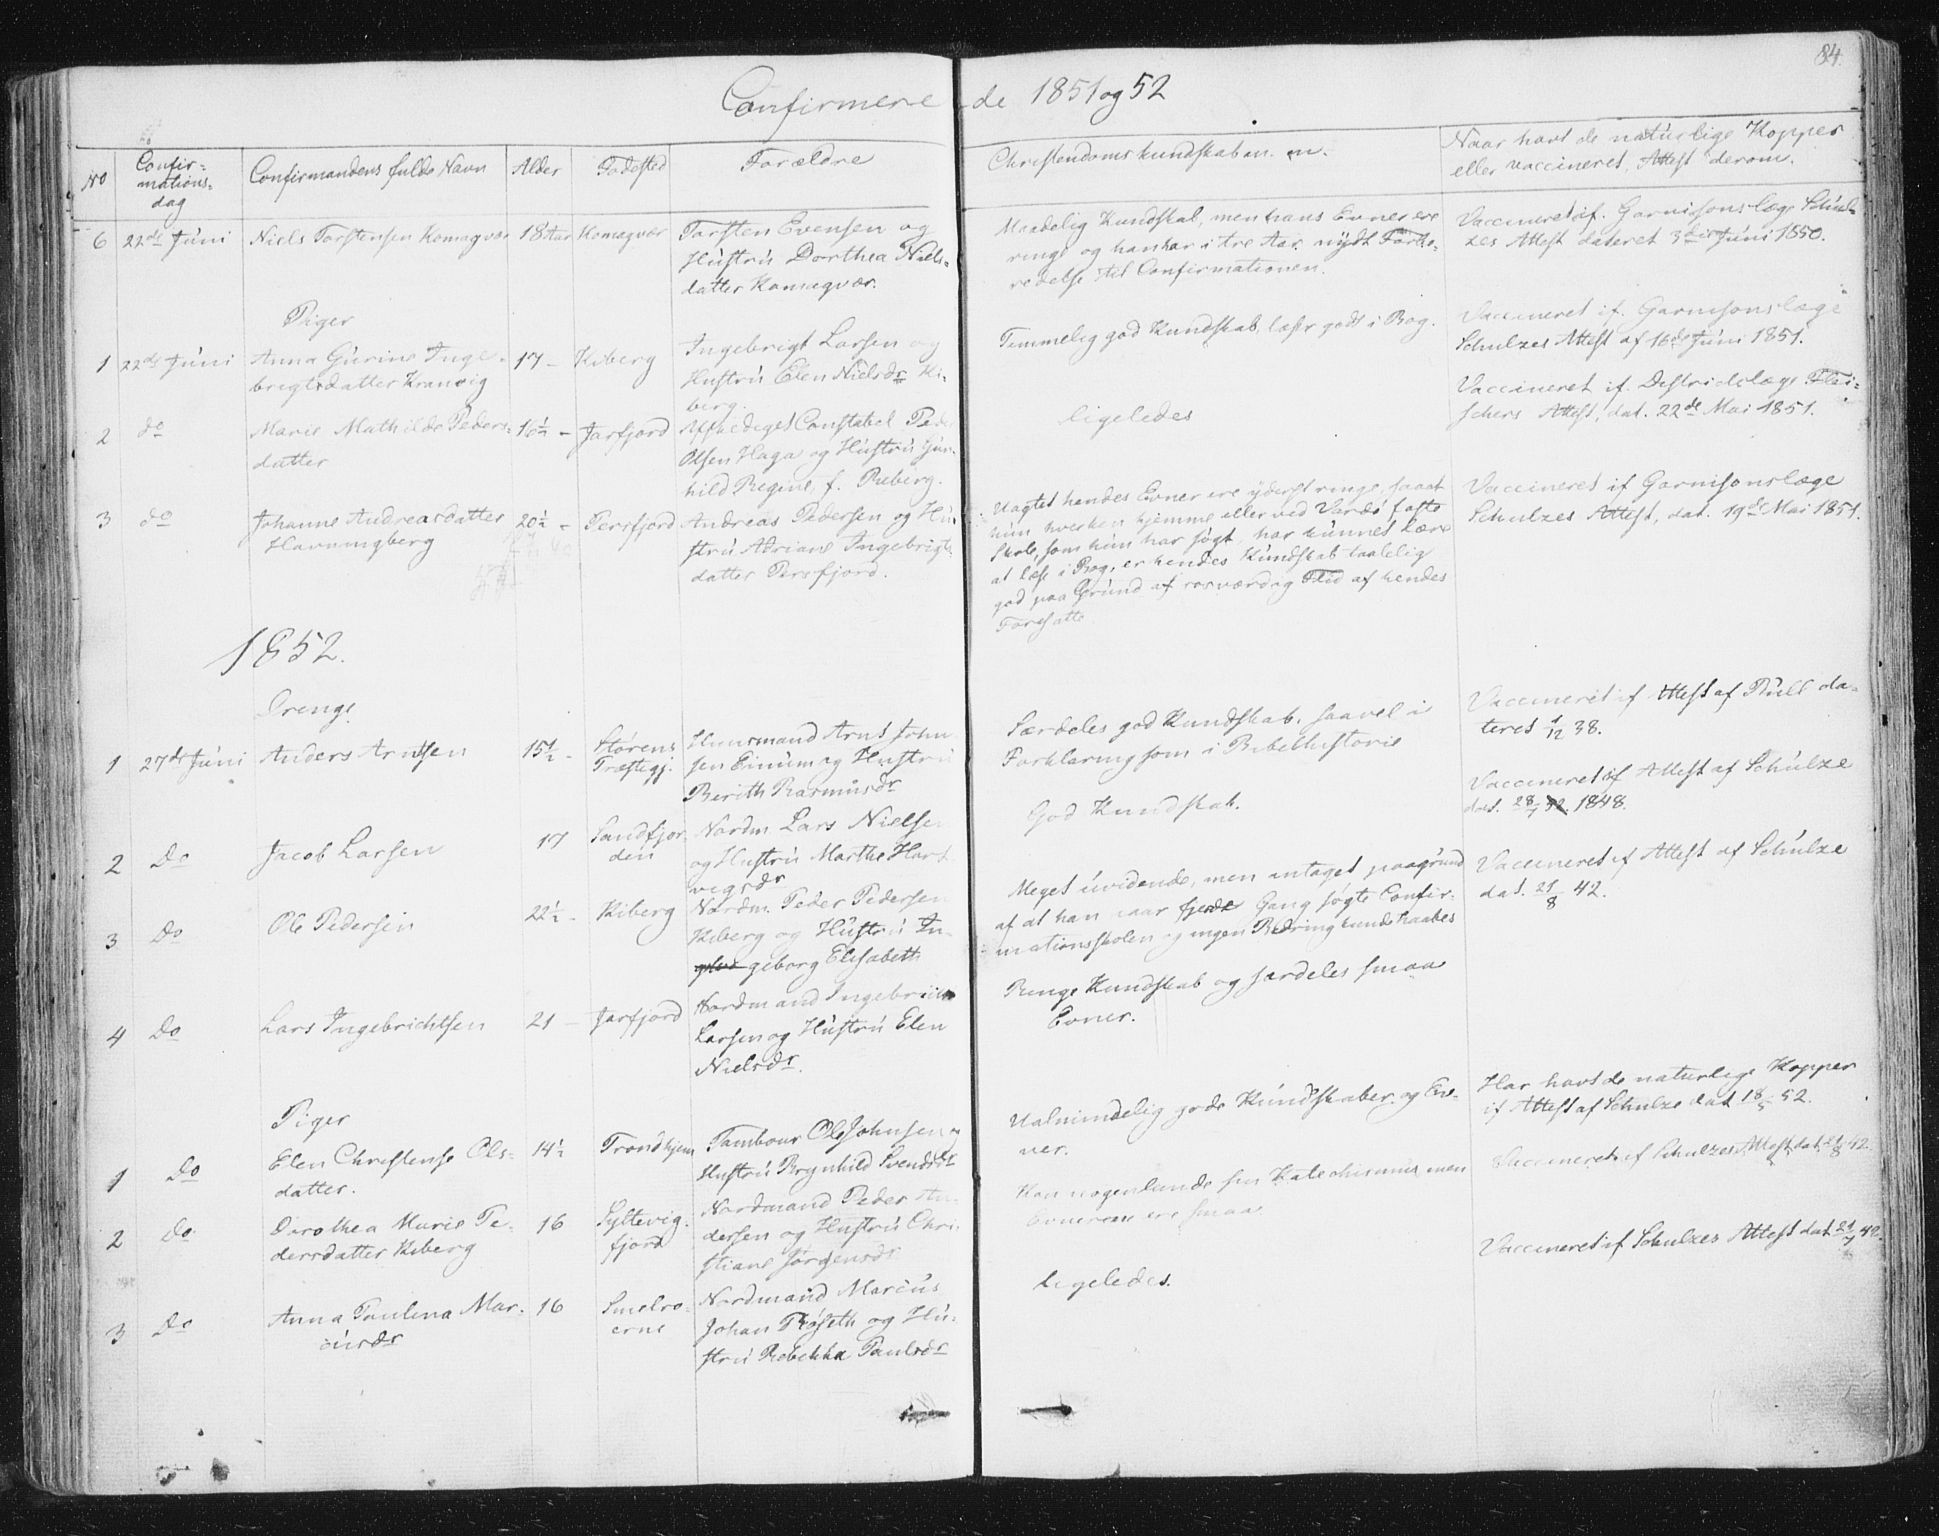 84.
Confirmerede 1851 og 52
No
Confirmationsdag
Confirmandens fulde Navn
Alder
Fødested
Forældre
Christendomskundskab m. m.
Naar havt de naturlige Kopper
eller vaccineret, Attest derom.
6 22de Juni Niels Torstensen Komagvær 18 Aar Komagvær
Torsten Evensen og
Hustru Dorthea Niels-
datter Komagvær.
Maadelig Kundskab, men hans Evner ere
ringe og han har i tre Aar nydt Forbe-
redelse til Confirmationen.
Vaccineret if. Garnisonslæge Schul-
zes Attest dateret 3die Juni 1850.
Piger
1 22de Juni Anna Gurine Inge-
brigtsdatter Kramvig
17 - Kiberg
Ingebrigt Larsen og
Hustru Elen Nielsdr Ki-
berg.
Temmelig god Kundskab, læser godt i Bog.
Vaccineret if. Garnisonslæge
Schulzes Attest af 16de Juni 1851.
2 do Marie Mathilde Peders-
datter
16½ - Jarfjord
Afskediget Constabel Peder
Olsen Haga og Hustru Gun-
hild Regine, f. Reberg.
ligeledes
Vaccineret if. Destrictslæge Flei-
schers Attest, dat. 22de Mai 1851.
3 do Johanne Andreasdatter
Havningberg
20½ - Persfjord
Andreas Pedersen og Hu-
stru Adriane Ingebrigts-
datter Persfjord.
Uagtet hendes Evner ere yderst ringe, saaat
hun hverken hjemme eller ved Vardø faste
Skole, som hun har søgt, har kunnet lære
at læse i Bog, er hendes Kundskab taalelig
god paa Grund af rosværdig Flid af hendes
Foresatte
Vaccineret if Garnisonslæge
Schulzes Attest, dat. 19de Mai 1851.
1852.
Drenge
1 27de Juni Anders Arntsen 15½ -
Størens
Præstegj.
Huusmand Arnt John-
sen Einum og Hustru
Berith Rasmusdr
Særdeles god Kundskab, saavel i
Forklaring som i Bibelhistorie
Vaccineret if Attest af Bull da-
teret 1/12 38.
2 Do Jacob Larsen 17
Sandfjor-
den
Nordm. Lars Nielsen
og Hustru Marthe Hart-
vigsdr
God Kundskab.
Vaccineret if Attest af Schulze
dat. 28/7 1848.
3 Do Ole Pedersen 22½ - Kiberg
Nordm. Peder Pedersen
Kiberg og Hustru In-
geborg Elisabeth
Meget uvidende, men antaget paagrund
af at han iaar fjerde Gang søgte Confir-
mationsskolen og ingen Bedring kunde haabes
Vaccineret if Attest af Schulze
dat. 21/8 42.
4 Do Lars Ingebrichtsen 21 - Jarfjord
Nordmand Ingebricht
Larsen og Hustru Elen
Nielsdr.
Ringe Kundskab og særdeles smaa
Evner.
Piger
1 Do Elen Christense Ols-
datter.
14½ Trondhjem
Tambour Ole Johnsen og
Hustru Brynhild Svendsdr
Ualmindelig gode Kundskaber og Ev-
ner.
Har havt de naturlige Kopper
if Attest af Schulze dat 18/5 52.
2 Do Dorothea Marie Pe-
dersdatter Kiberg
16
Syltevig-
fjord
Nordmand Peder An-
dersen og Hustru Chri-
stiane Jørgensdr
Kan nogenlunde sin Katechismus, men
Evnerne ere smaa
Vaccineret if Schulzes Attest dat 21/8 42.
3 Do Anna Paulina Mar-
cusdr
16
Smelro-
erne
Nordmand Marcus
Johan Røseth og Hu-
stru Rebekka Paulsdr
Ligeledes.
Vaccineret if Schulzes Attest dat 21/7 42.